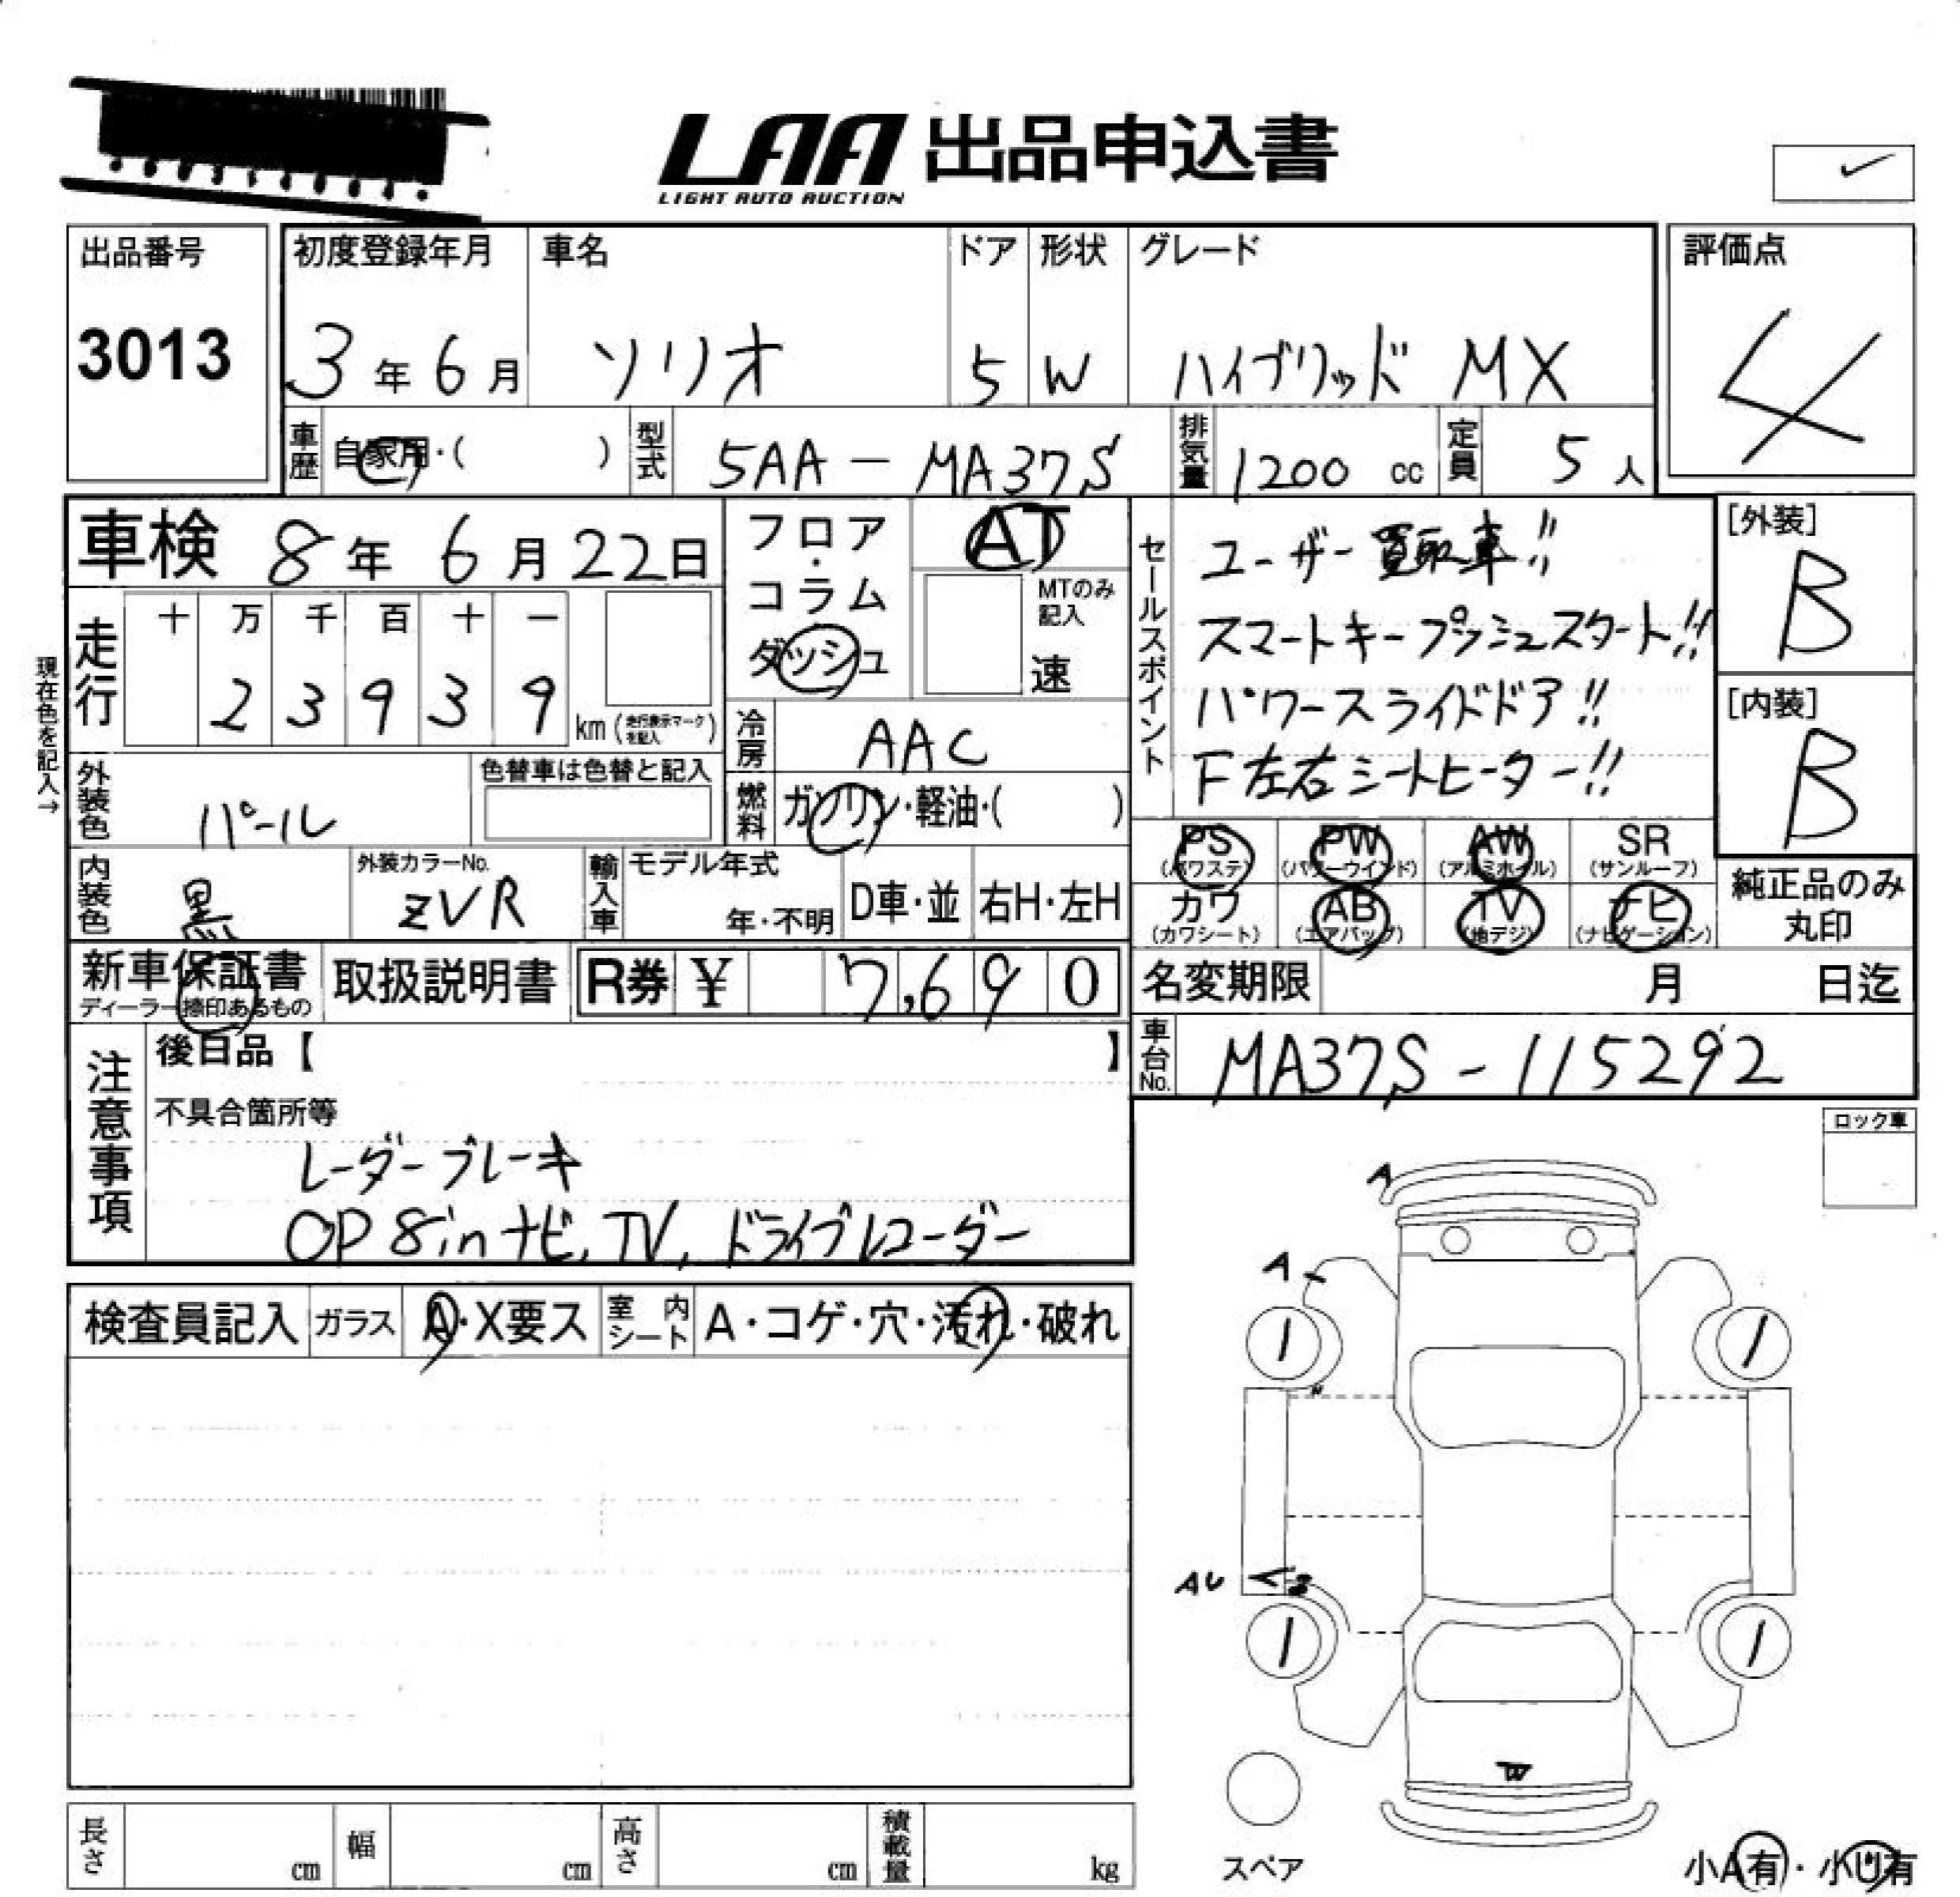 LAA 出品申込書
LIGHT AUTO AUCTION
出品番号
3013
初度登録年月
3年6月
車名
ソリオ
ドア
5
形状
W
グレード
ハイブリッド MX
評価点
4
車歴
自家用・( )
型式
5AA-MA37S
排気量
1200 cc
定員
5人
車検 8年6月22日
現在色を記入→
走行
十 万 千 百 十 一
2 3 9 3 9
km (走行表示マークを記入)
フロア・コラム
ダッシュ
AT
MTのみ記入
速
冷房
AAC
燃料
ガソリン・軽油・( )
セールスポイント
ユーザー買取車!!
スマートキープッシュスタート!!
パワースライドドア!!
F左右シートヒーター!!
[外装]
B
[内装]
B
外装色
パール
色替車は色替と記入
内装色
黒
外装カラーNo.
ZVR
輸入車
モデル年式
年・不明
D車・並
右H・左H
PS
(パワステ)
PW
(パワーウインド)
AW
(アルミホイル)
SR
(サンルーフ)
カワ
(カワシート)
AB
(エアバッグ)
TV
(地デジ)
ナビ
(ナビゲーション)
純正品のみ
丸印
新車保証書
ディーラー捺印あるもの
取扱説明書
R券 ¥ 7,690
名変期限 月 日迄
車台No.
MA37S-115292
注意事項
後日品【 】
不具合箇所等
レーダーブレーキ
OP 8inナビ、TV、ドライブレコーダー
ロック車
検査員記入
ガラス
A・X要ス
室内シート
A・コゲ・穴・汚れ・破れ
A
A
1 1
AU
1 1
W
スペア
小A有・小U有
長さ cm
幅 cm
高さ cm
積載量 kg